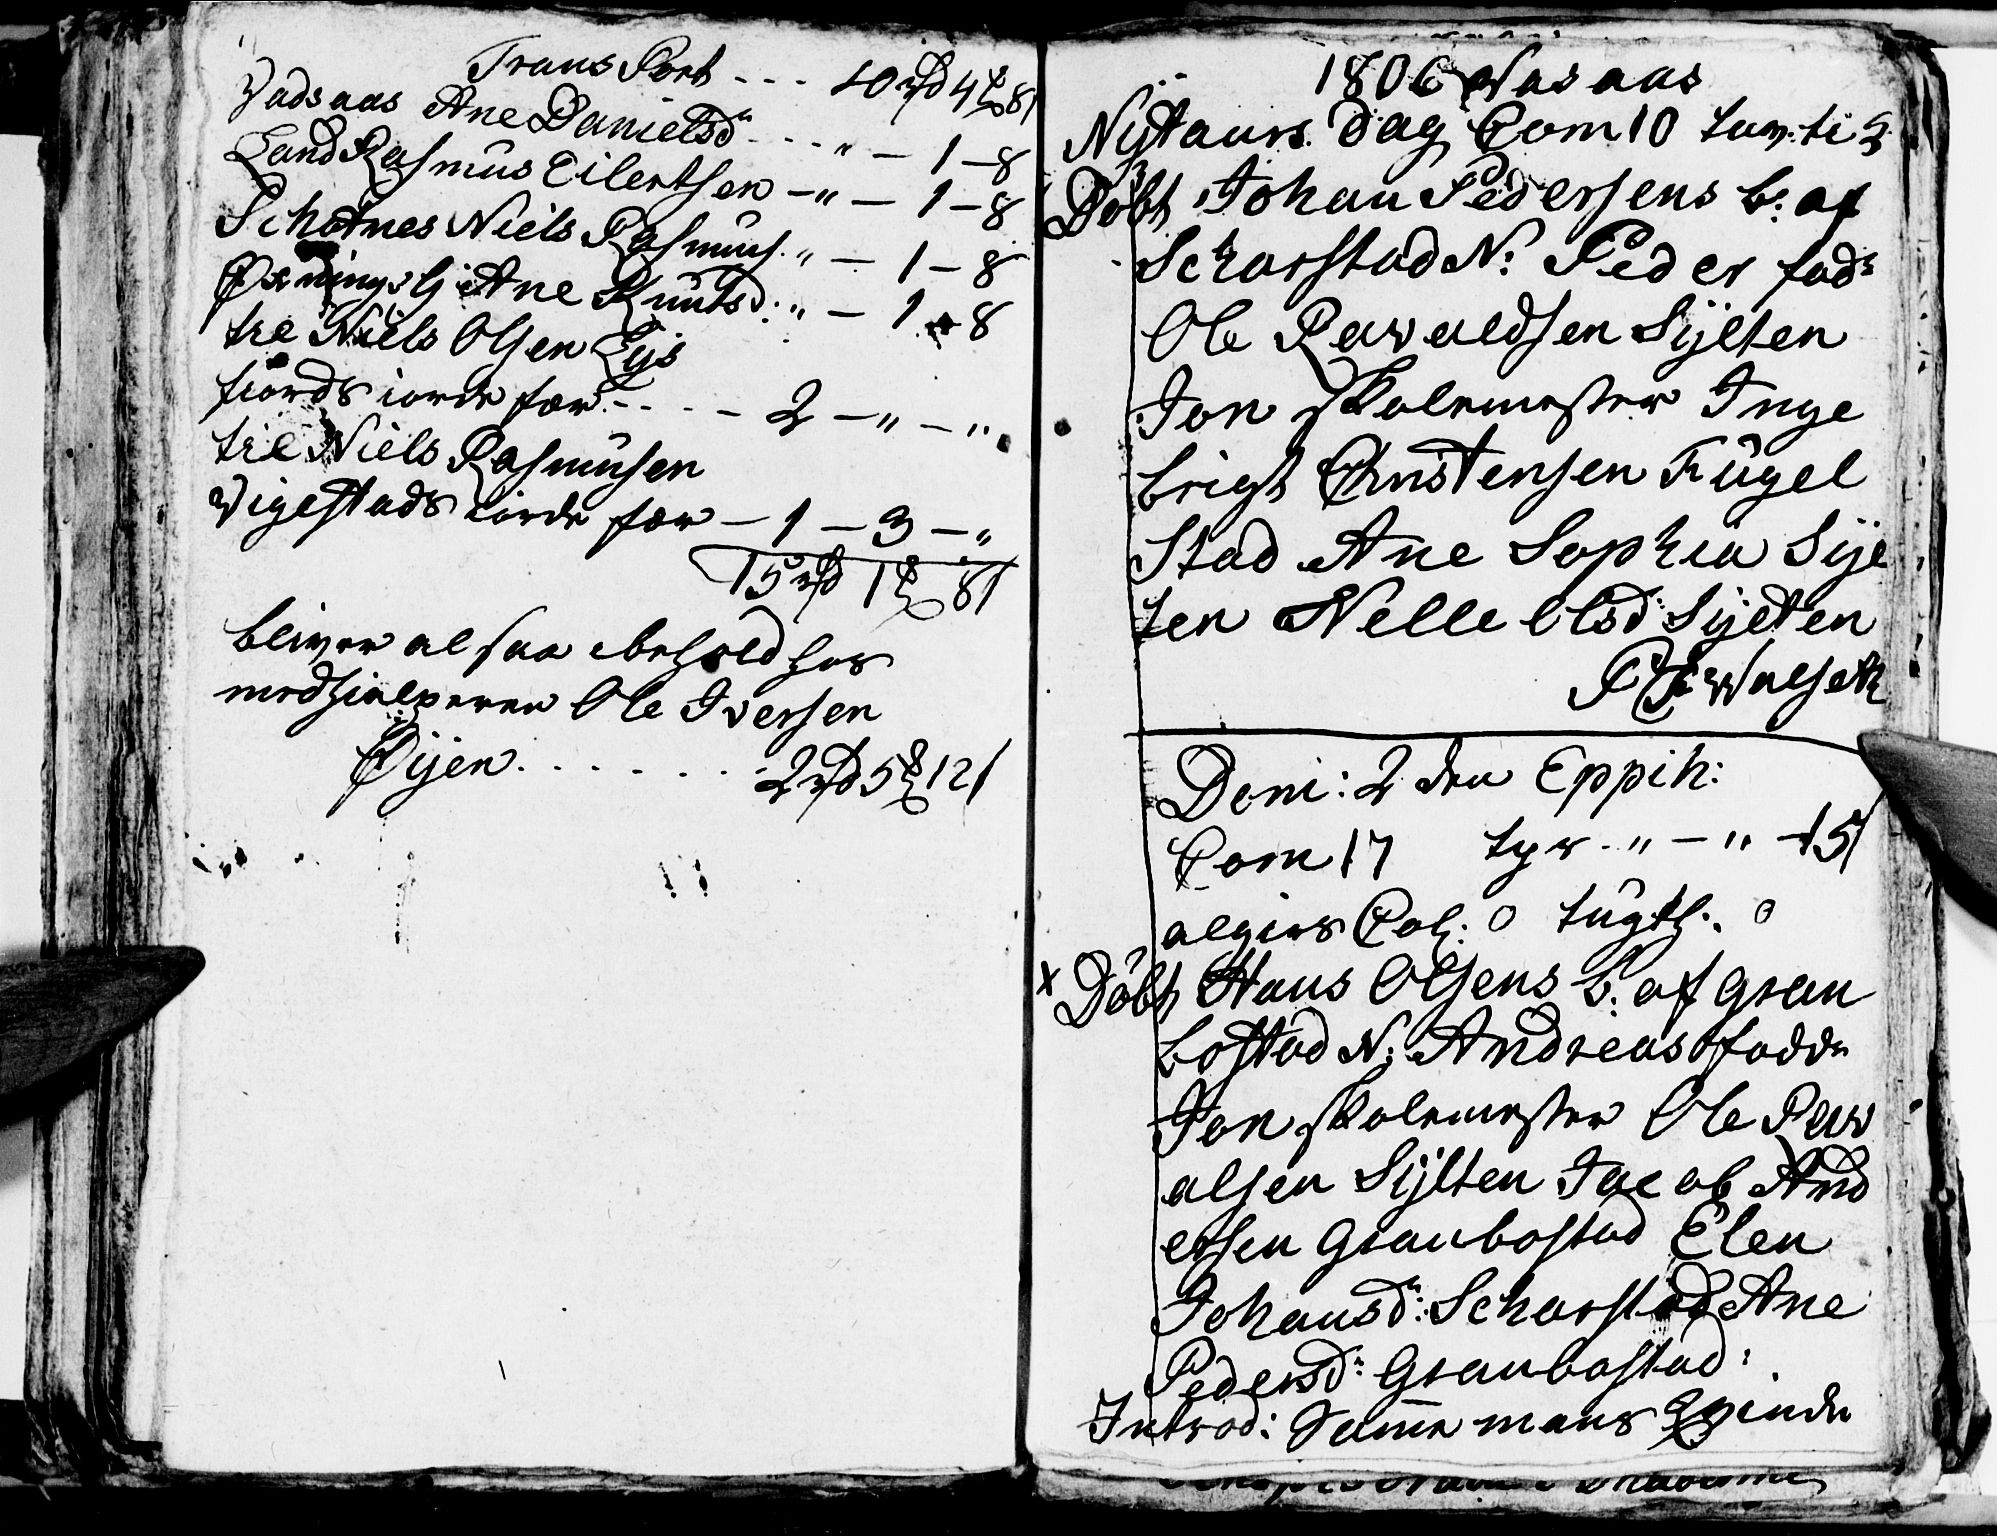 Trans Port - - - 10 rd 4 ₰ 8/
Vadsaas Ane Danielsd - - - " - 1 - 8
Land Rasmus Eilertsen - " - 1 - 8
Schotnes Niels Rasmus. " - 1 - 8
Ane Knutsd: " - 1 - 8
til Niels Olsen Eÿs
fiords iorde fær - - - - 2 - " - "
til Niels Rasmusen
Vigestads iorde fær - 1 - 3 - "
15 rd 1 ₰ 8/
bliver al saa i behold hos
medhielperen Ole Iversen
Øÿen . . . . . . 2 rd 5 ₰ 12/
1806 Wasaas
Nÿtaars Dag Com 10
Döbt Johan Pedersens b: af
Scharstad N: Peder fad
Ole Rawaldsen Sÿlten
Jon skolemester Inge
brigt Christensen Fugel
stad Ane Sophia Sÿl
ten Nelle Olsd: Sÿlten
Walseth
Domi: 2 den Eppih:
Com 17 - " - " - 15/
algiers Col: 0 tugth. 0
x Döbt Hans Olsens b. af Gran
bostad N: Andreas fadd
Jon skolemester Ole Raw
alsen Sÿlten Jacob And
ersen Granbostad Elen
Johansd: Scharstad Ane
Pedersd: Granbostad:
Introd: Same mans Qvinde